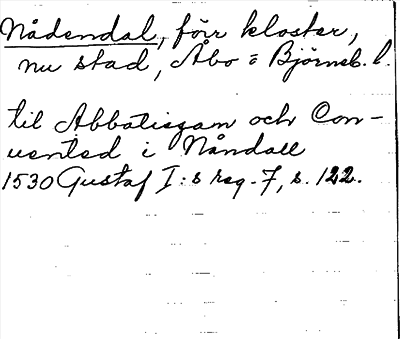 Nådendal, förr kloster,
nu stad, Åbo = Björneb. l.
til Abbatissan och Con-
uented i Nåndall
1530 Gustaf I:s reg. 7, s. 122.